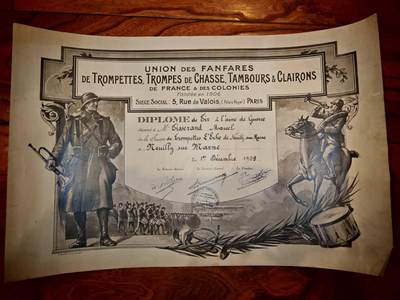 UNION DES FANFARES
DE TROMPETTES, TROMPES DE CHASSE, TAMBOURS & CLAIRONS
DE FRANCE & DES COLONIES
Fondée en 1906
SIÈGE SOCIAL: 5, Rue de Valois, (Palais Royal) PARIS
DIPLOME de Tir à l'arme de Guerre
décerné à Mr Tisserand Marcel
de la Société de trompettes L'Echo de Neuilly sur Marne
à Neuilly sur Marne
le 1er Décembre 1929